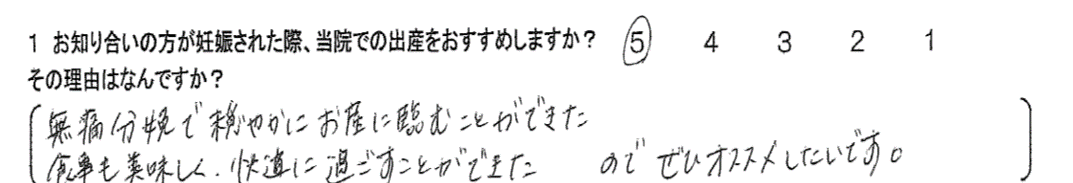 1 お知り合いの方が妊娠された際、当院での出産をおすすめしますか? 5 4 3 2 1
その理由はなんですか?
無痛分娩で穏やかにお産に臨むことができた
食事も美味しく、快適に過ごすことができた のでぜひオススメしたいです。